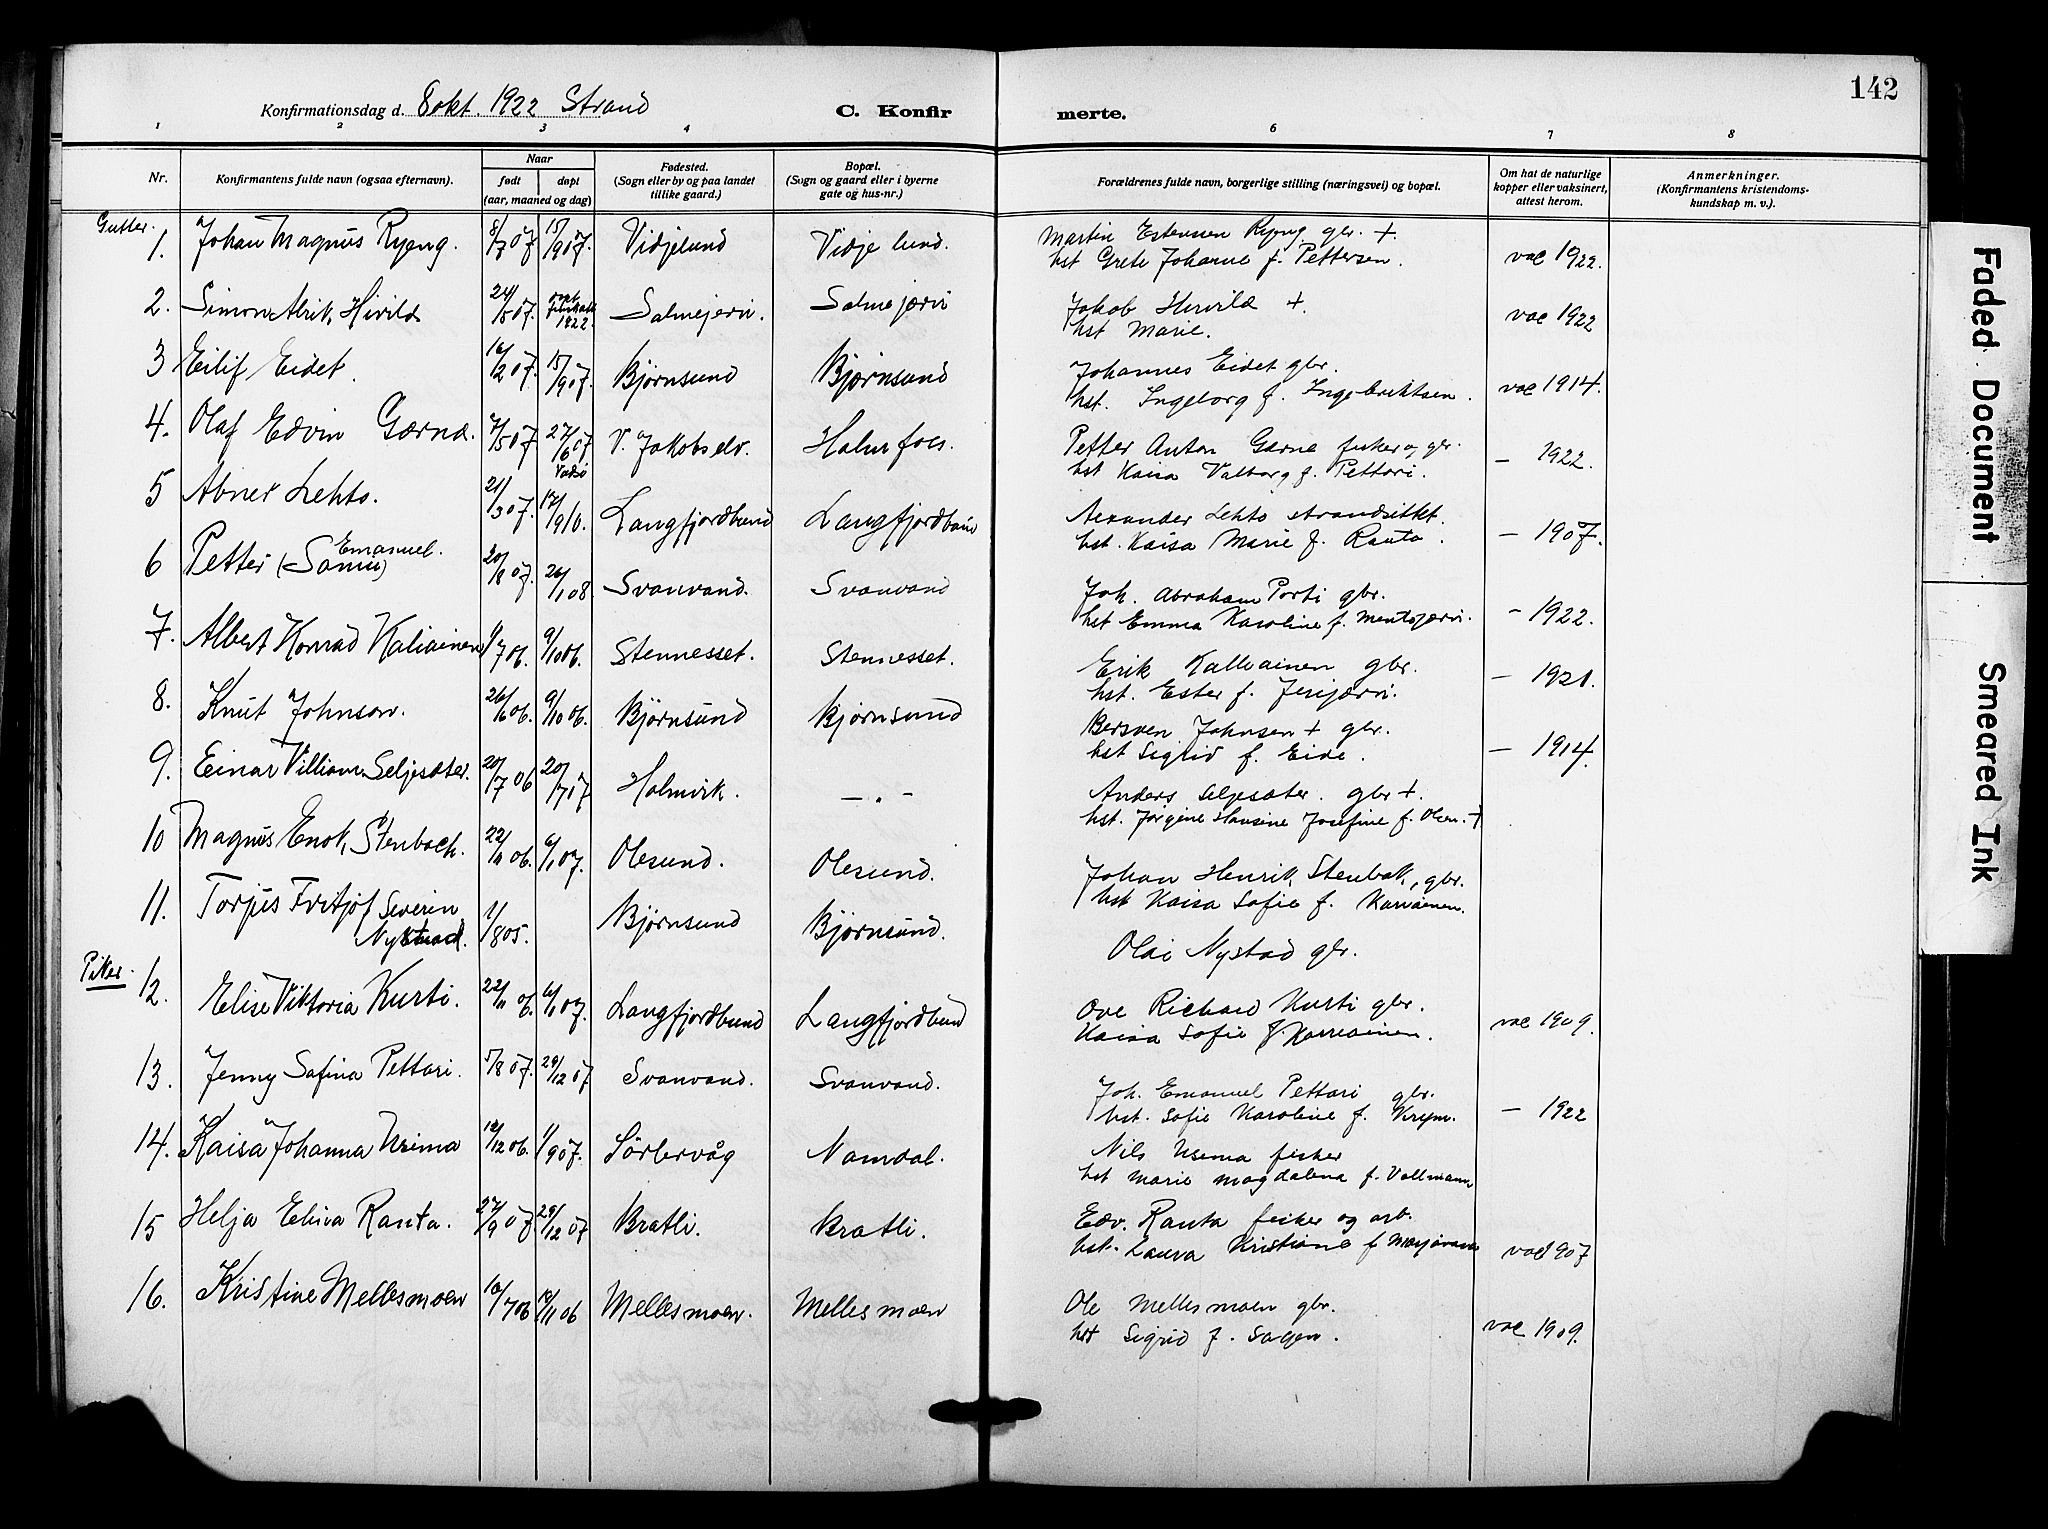 142
Konfirmationsdag d. 8 okt. 1922 Strand C. Konfirmerte.
1 2 3 4 5 6 7 8
Nr. Konfirmantens fulde navn (ogsaa efternavn). Naar født døpt (aar, maaned og dag) Fødested. (Sogn eller by og paa landet tillike gaard.) Bopæl. (Sogn og gaard eller i byerne gate og hus-nr.) Forældrenes fulde navn, borgerlige stilling (næringsvei) og bopæl. Om hat de naturlige kopper eller vaksinert, attest herom. Anmerkninger. (Konfirmantens kristendoms-kundskap m. v.).
Gutter.
1. Johan Magnus Ryeng. 8/7 07 15/9 07. Vidjelund Vidjelund. Martin Estensen Ryeng gbr. +. hst Grete Johanne f. Pettersen. vac 1922.
2. Simon Alrik Hivild 24/5 07. 1922. Salmejervi. Salmejærvi Jakob Hivild + hst Marie. vac 1922
3 Eilif Eidet. 16/2 07. 15/9 07. Bjørnsund Bjørnsund Johannes Eidet gbr. hst. Ingeborg f. Ingebriktsen. vac 1914.
4. Olaf Edvin Gærna. 7/5 07. 27/6 07 Vadsø V. Jakobselv. Holmfoss. Petter Anton Gærna fisker og gbr. hst Kaisa Valborg f. Pettari. — 1922.
5 Abner Lehto. 21/3 07. 17/9 10. Langfjordbund Langfjordbund Alexander Lehto strandsittet. hst. Kaisa Marie f. Ranta. — 1907.
6 Petter (Samu) Emanuel. 20/8 07. 26/1 08 Svanvand. Svanvand Joh. Abraham Porti gbr. hst Emma Karoline f. Mentojærvi. — 1922.
7. Albert Konrad Kaliainen 1/7 06. 9/10 06. Stennesset. Stennesset. Erik Kalliainen gbr. hst. Ester f. Jerijærvi. — 1921.
8. Knut Johnson. 26/6 06. 9/10 06. Bjørnsund Bjørnsund Bersven Johnsen + gbr. hst Sigrid f. Eide. — 1914.
9. Einar Villiam Seljesæter. 20/7 06 20/7 07 Holmvik. — " — Anders Seljesæter. gbr +. hst. Jørgine Hansine Josefine f. Olsen. +
10 Magnus Enok Stenbach. 22/11 06. 6/1 07. Olesund. Olesund. Johan Henrik Stenbak, gbr. hst Kaisa Sofie f. Karvainen.
11. Torjus Fritjof Severin Nystad. 1/8 05. Bjørnsund Bjørnsund. Olai Nystad gbr.
Piker.
12. Elise Viktoria Kurti. 22/11 06. 6/1 07. Langfjordbund Langfjordbund Ove Richard Kurti gbr. Kaisa Sofie f. Karvainen. vac 1909.
13. Jenny Safina Pettari. 5/8 07. 29/12 07 Svanvand. Svanvand. Joh. Emanuel Pettari gbr. hst. Sofie Karoline f. Krym. — 1922
14. Kaisa Johanna Usima 12/12 06. 1/9 07. Sørlervåg Namdal. Nils Usema fisker hst Marie Magdalena f. Vollmann
15 Helja Elina Ranta. 27/9 07. 29/12 07 Bratli. Bratli. Edv. Ranta fisker og arb. hst. Laura Kristiane f. Marjavaara vac 1907
16. Kristine Mellesmoen 10/7 06 18/11 06 Mellesmoen. Mellesmoen Ole Mellesmoen gbr. hst Sigrid f. Sagen. vac 1909.
Faded Document
Smeared Ink